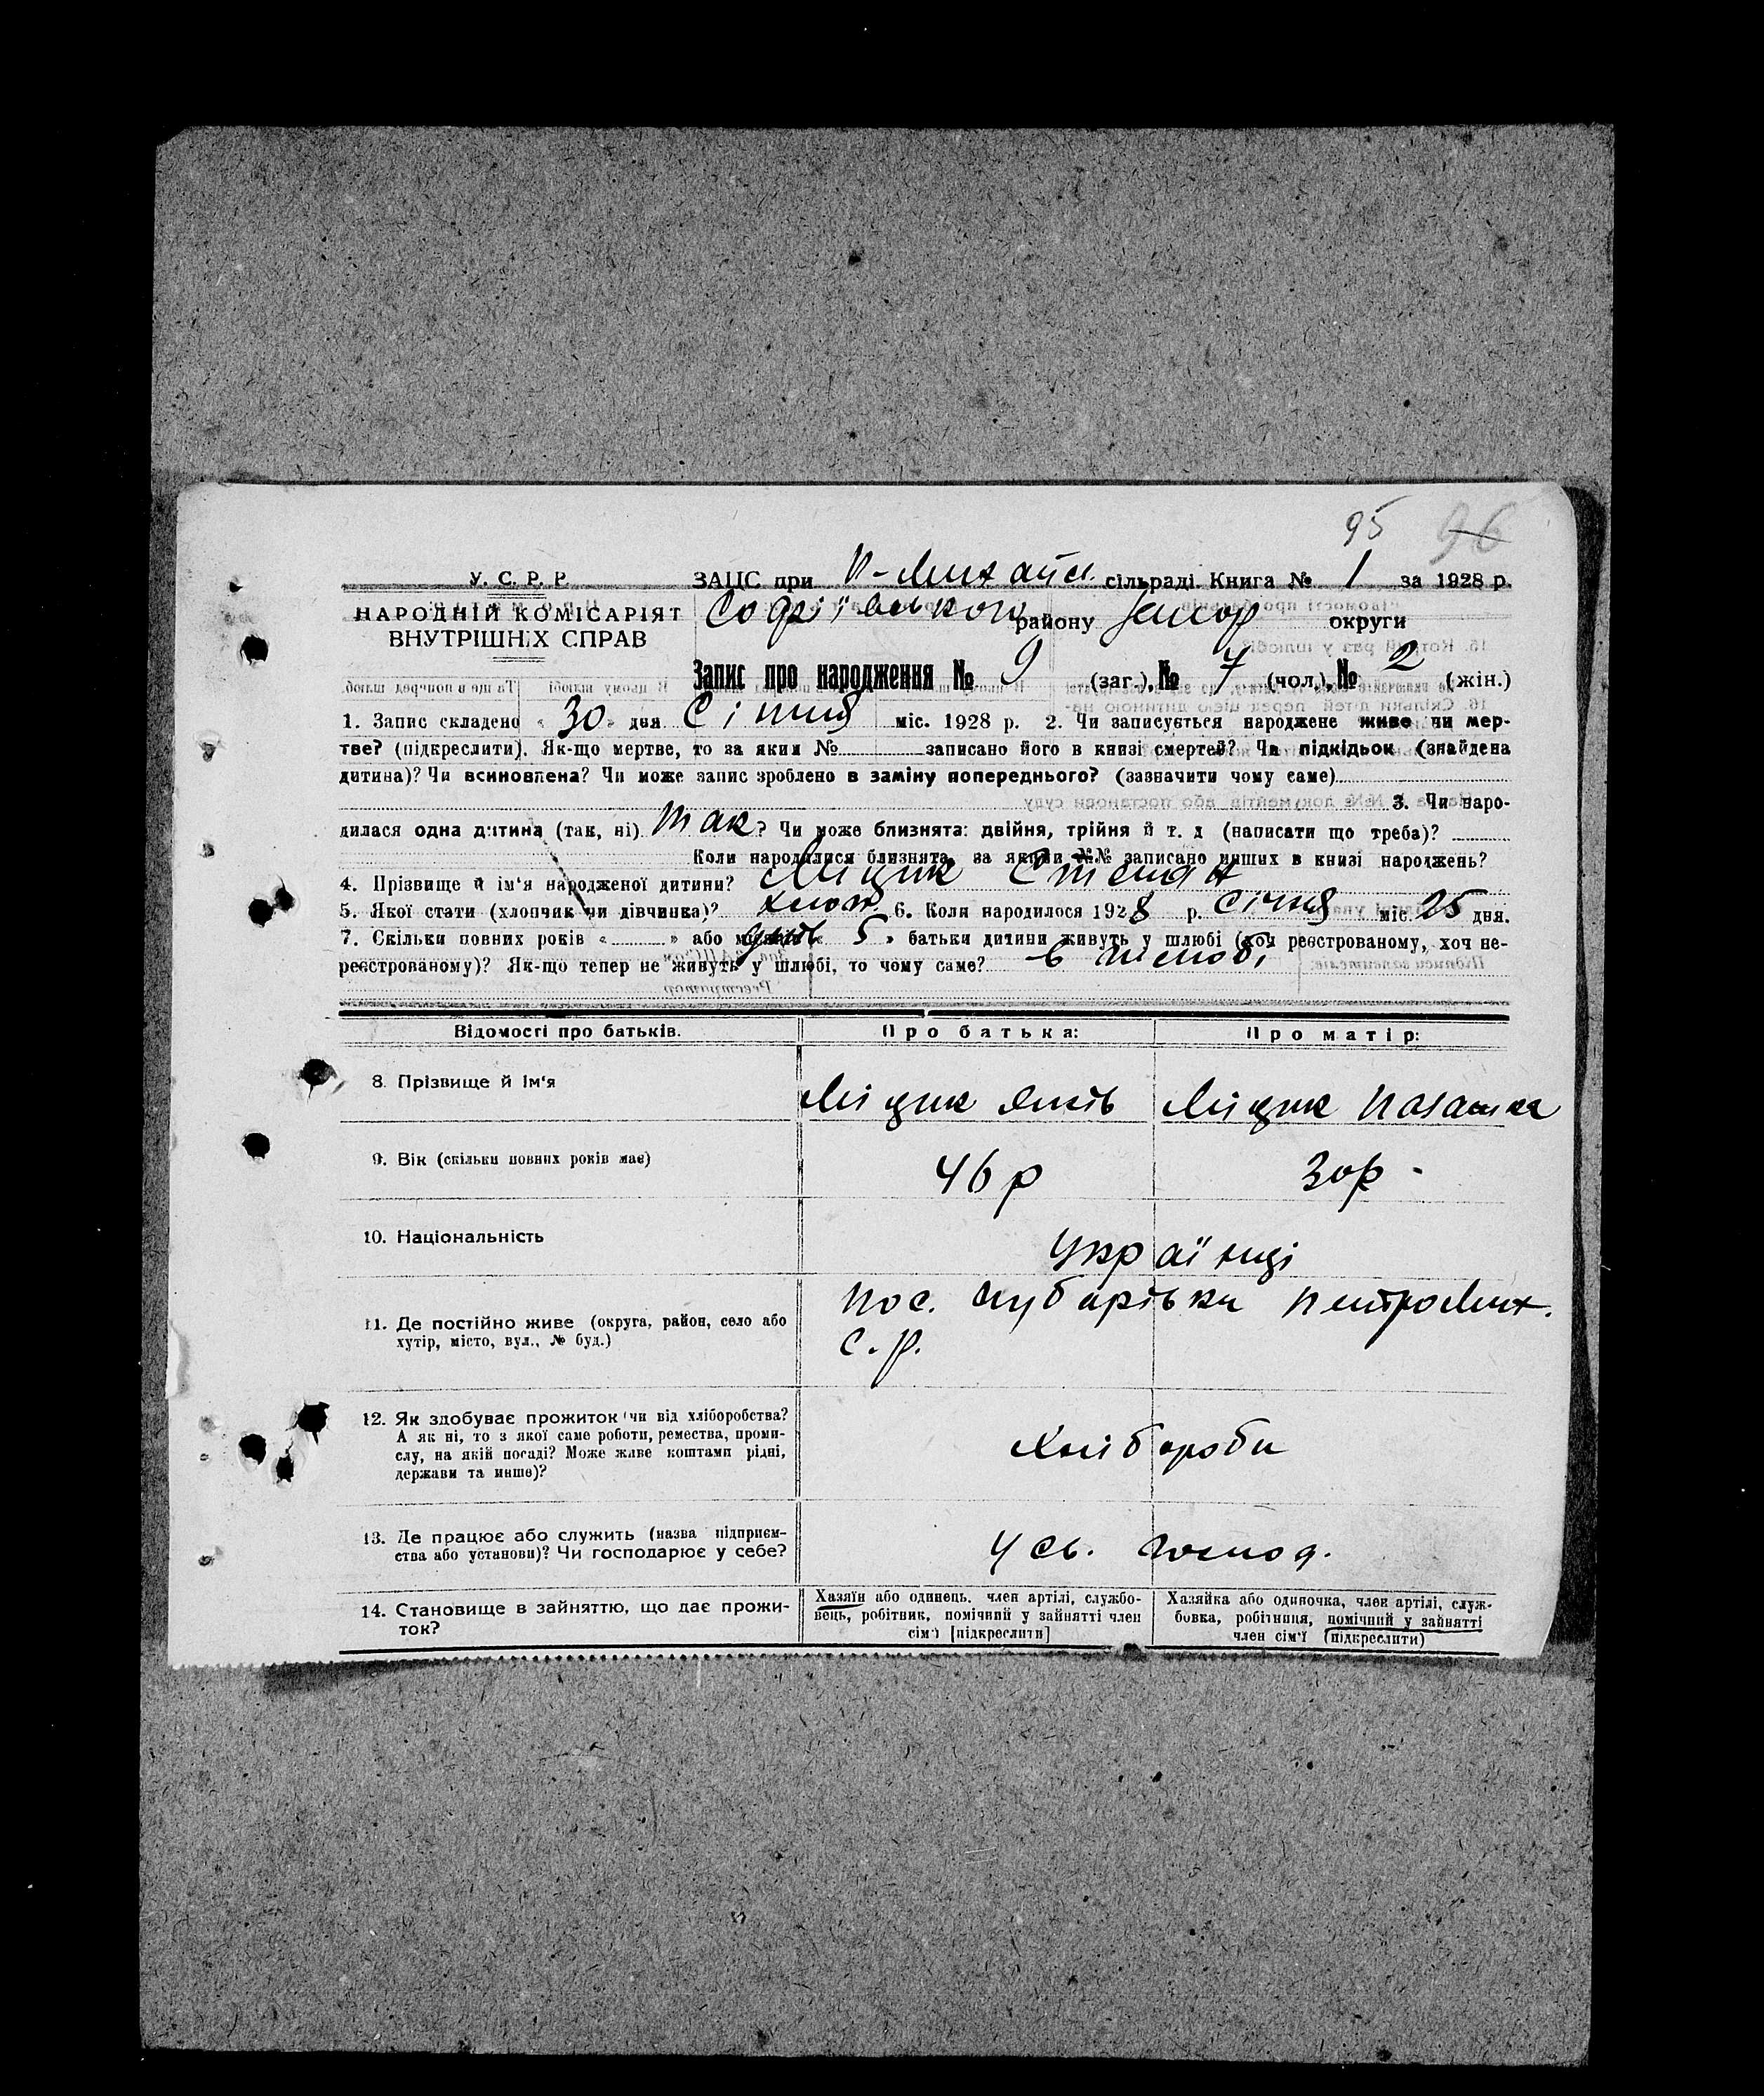 95 96
У. С. Р. Р.
НАРОДНІЙ КОМІСАРІЯТ
ВНУТРІШНІХ СПРАВ
ЗАЦС при П-Михайл. сільраді Книга № 1 за 1928 р.
Софіївського району Запор округи
Запис про народження № 9 (заг.), № 7 (чол.), № 2 (жін.)
1. Запис складено «30» дня Січня міс. 1928 р. 2. Чи записується народжене живе чи мер-
тве? (підкреслити). Як-що мертве, то за яким № записано його в книзі смертей? Чи підкідьок (знайдена
дитина)? Чи всиновлена? Чи може запис зроблено в заміну попереднього? (зазначити чому саме)
3. Чи наро-
дилася одна дитина (так, ні) так? Чи може близнята: двійня, трійня й т. д (написати що треба)?
Коли народилися близнята, за якими №№ записано инших в книзі народжень?
4. Прізвище й ім'я народженої дитини? Міцик Степан
5. Якої стати (хлопчик чи дівчинка)? хлоп. 6. Коли народилося 1928 р. Січня міс. 25 дня.
7. Скільки повних років « » або « 5 » батьки дитини живуть у шлюбі (хоч реєстрованому, хоч не-
реєстрованому)? Як-що тепер не живуть у шлюбі, то чому саме? в шлюбі
Відомості про батьків. Про батька: Про матір:
8. Прізвище й ім'я Міцик Яків Міцик Палашка
9. Вік (скільки повних років має) 46 р 30 р -
10. Національність Українці
11. Де постійно живе (округа, район, село або
хутір, місто, вул., № буд.)
пос. Чубарівка ПетроМих.
с. р.
12. Як здобуває прожиток чи від хліборобства?
А як ні, то з якої саме роботи, ремества, проми-
слу, на якій посаді? Може живе коштами рідні,
держави та инше)?
Хлібороби
13. Де працює або служить (назва підприєм-
ства або установи)? Чи господарює у себе?
У св. господ.
14. Становище в зайняттю, що дає прожи-
ток?
Хазяїн або одинець. член артілі, службо-
вець, робітник, помічний у зайнятті член
сім'ї [підкреслити]
Хазяйка або одиночка, член артілі, служ-
бовка, робітниця, помічний у зайнятті
член сім'ї (підкреслити)